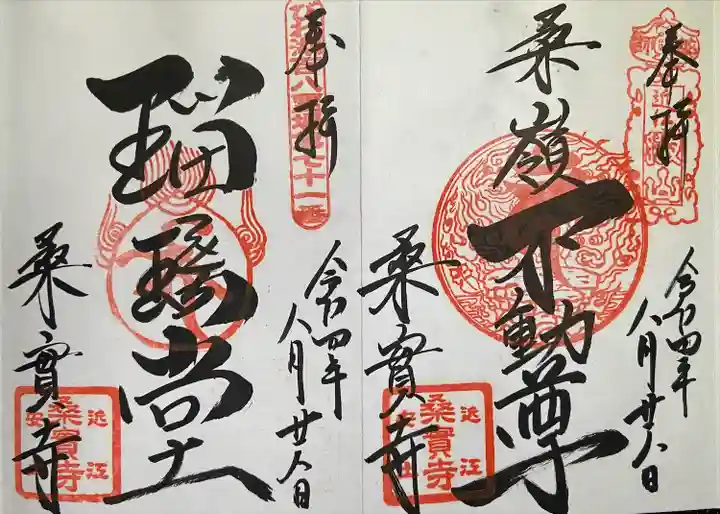 奉拝
桑嶺不動尊
桑實寺
令和四年
八月廿八日
近江
桑實寺
安土
奉拝
瑠璃堂
桑實寺
令和四年
八月廿八日
近江
桑實寺
安土